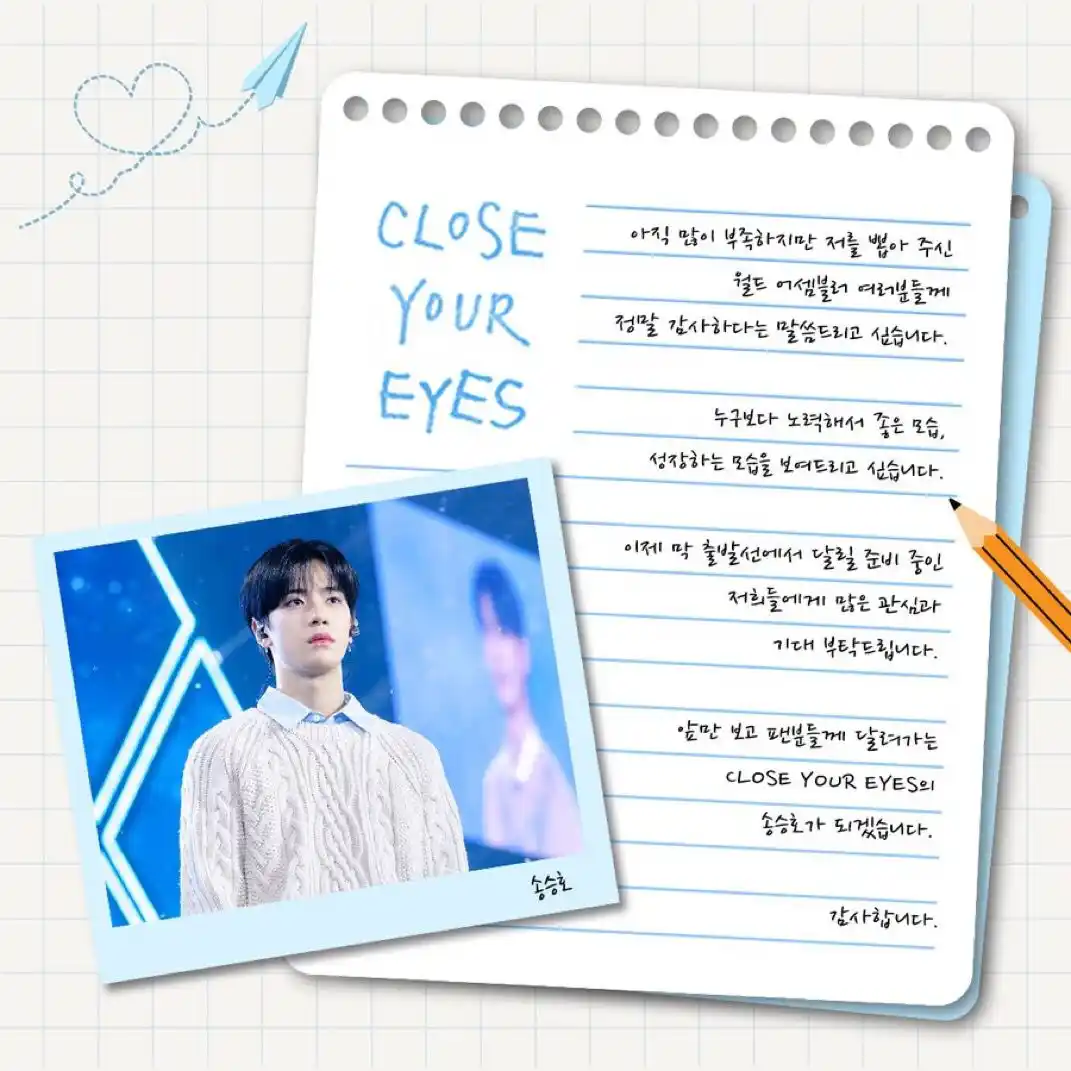 CLOSE
YOUR
EYES
아직 많이 부족하지만 저를 뽑아 주신
월드 어셈블러 여러분들께
정말 감사하다는 말씀드리고 싶습니다.
누구보다 노력해서 좋은 모습,
성장하는 모습을 보여드리고 싶습니다.
이제 막 출발선에서 달릴 준비 중인
저희들에게 많은 관심과
기대 부탁드립니다.
앞만 보고 팬분들께 달려가는
CLOSE YOUR EYES의
송승호가 되겠습니다.
감사합니다.
송승호